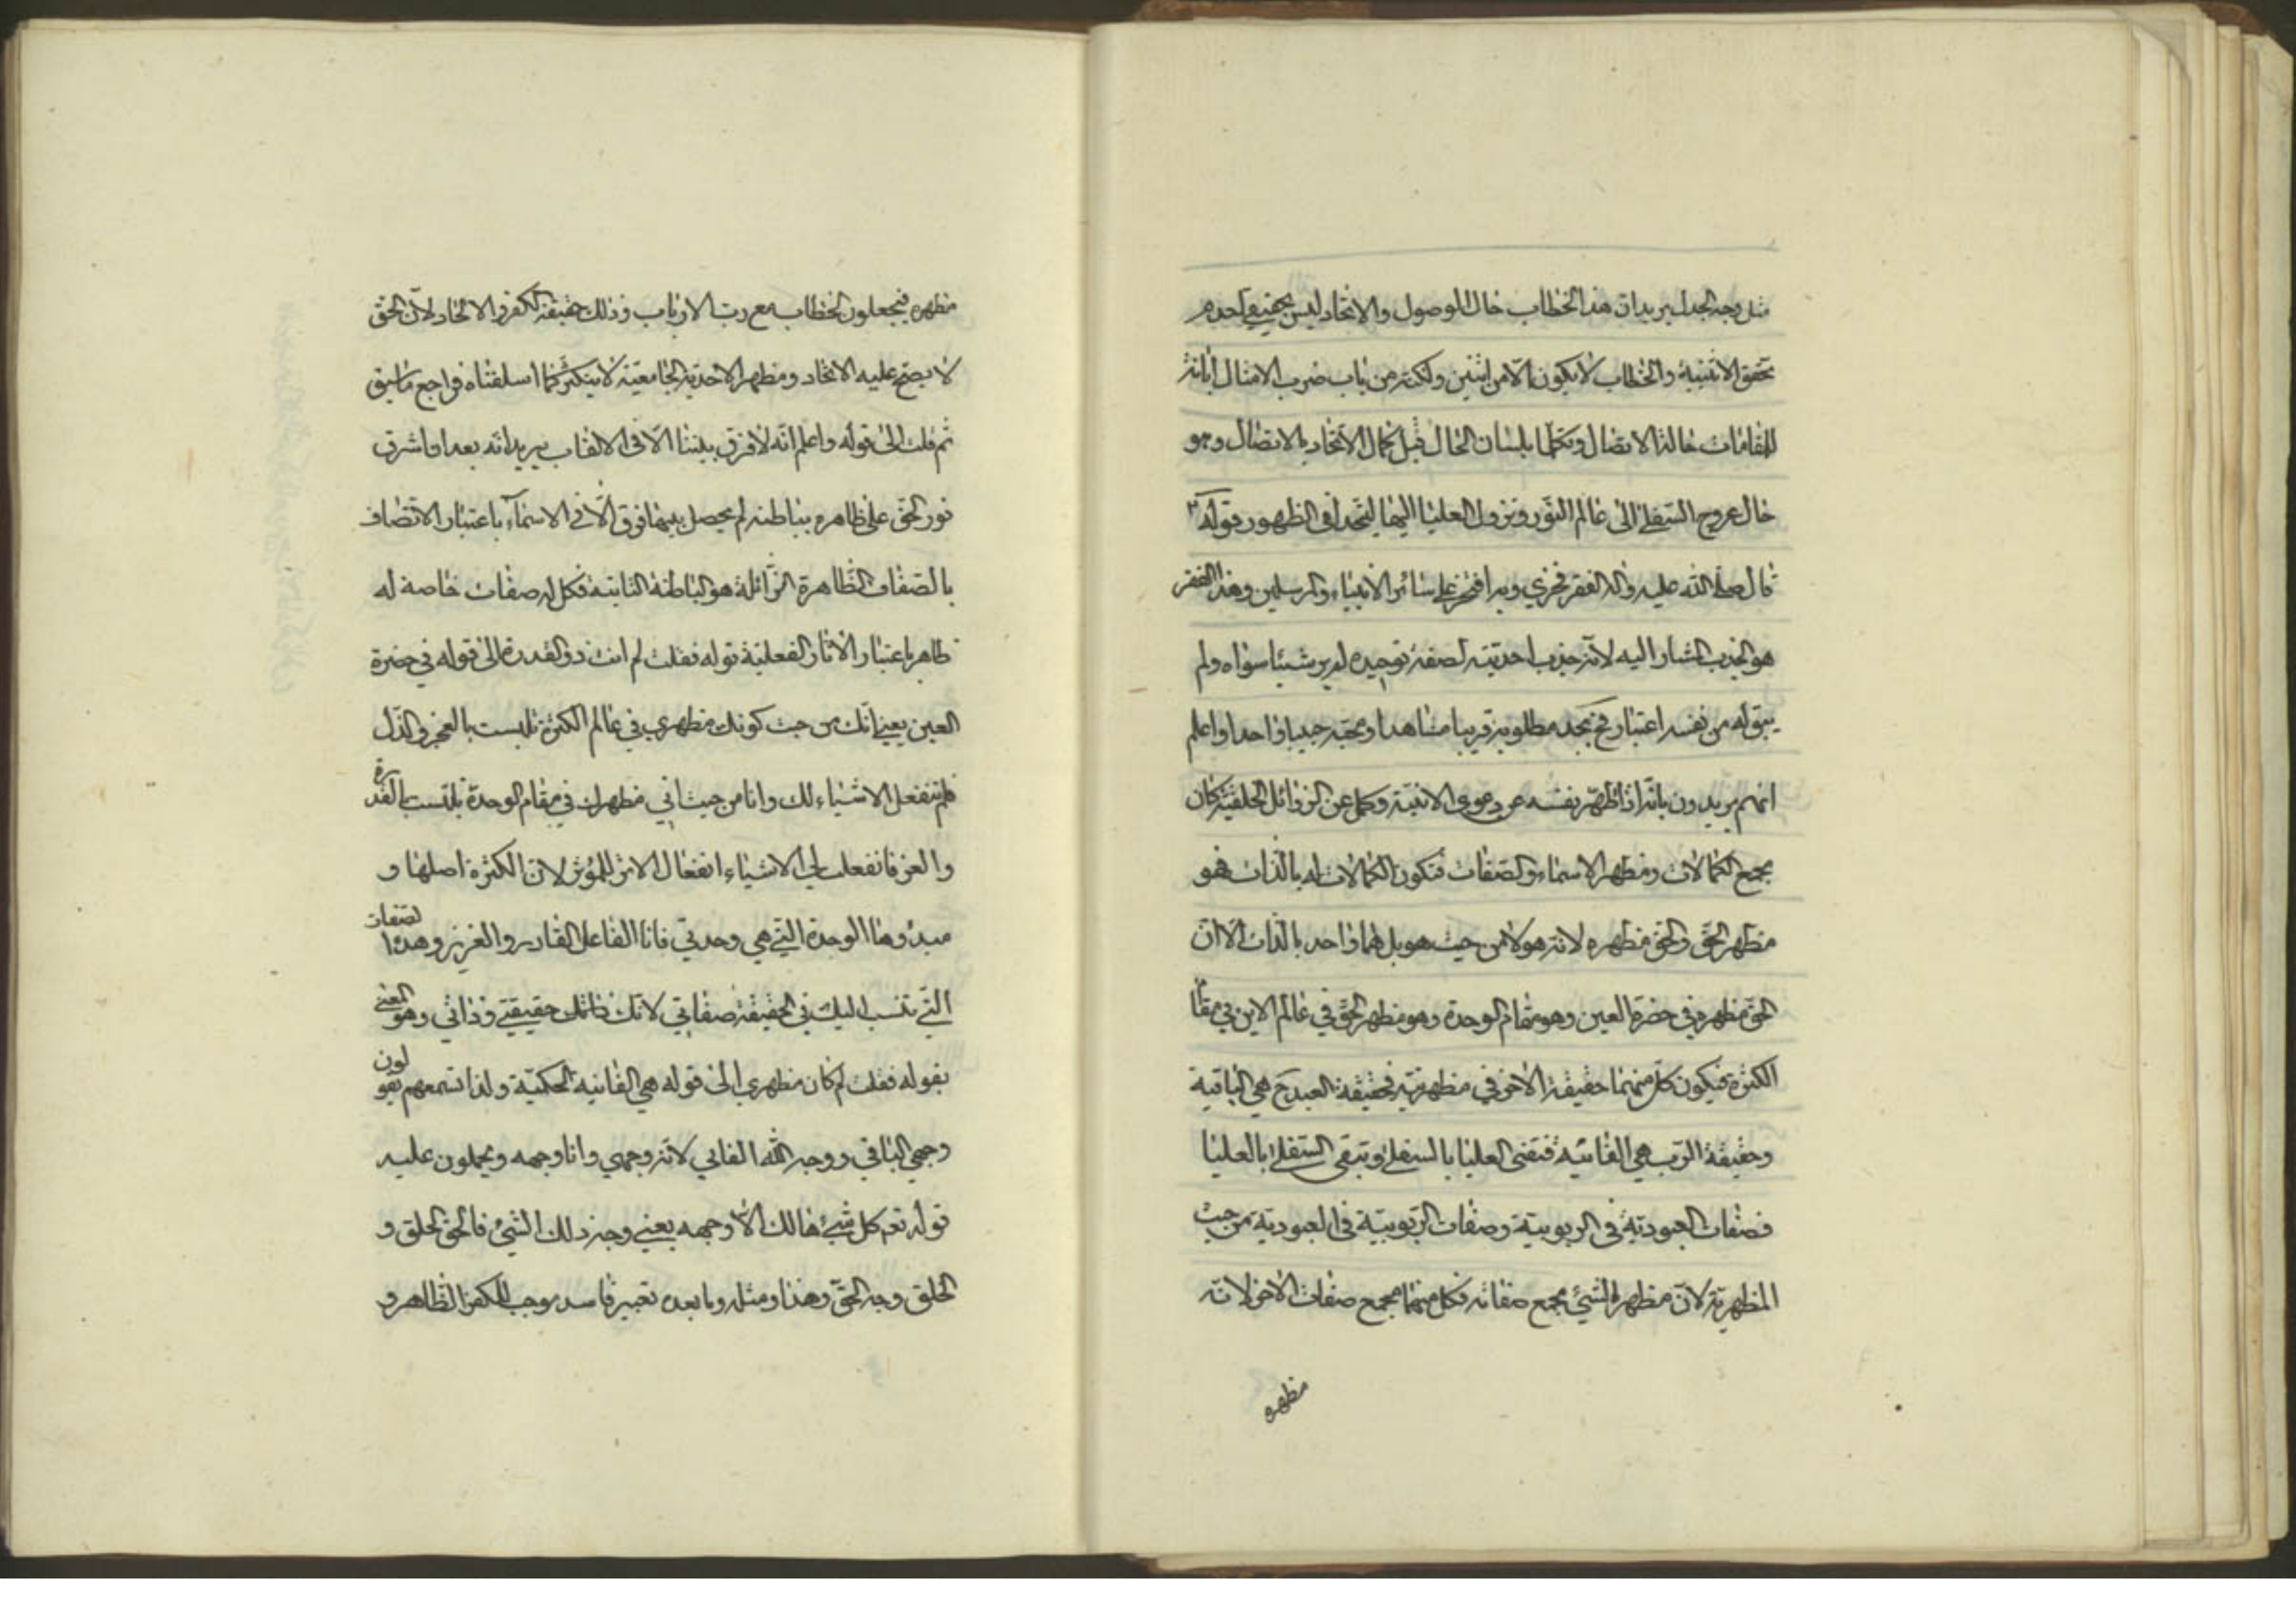 مثل وجه الجدل يريد ان هذا الخطاب حال الوصول والاتحاد ليس بحقيقي لعدم
تحقق الاثنينية والخطاب لا يكون الا من اثنين ولكنه من باب ضرب الامثال ابانة
للمقامات حالة الاتصال وتكلما بلسان الحال قبل كمال الاتحاد بالاتصال وهو
حال عروج السفلى الى عالم النور ونزول العليا اليها ليتحدا في الظهور قوله
قال صلى الله عليه واله الفقر فخري وبه افتخر على سائر الانبياء والمرسلين وهذا الفقر
هو الجذب المشار اليه لانه جذب احديته لصفة توحيده لم ير شيئا سواه ولم
يبق له من نفسه اعتبار فح يجد مطلوبه قريبا مشاهدا ومحبه حبيبا واحدا واعلم
انهم يريدون بانه اذا طهر نفسه عن دعوى الانية وكمل عن الرذائل الخلقية كان
مجمع الكمالات ومظهر الاسماء والصفات فتكون الكمالات له بالذات فهو
مظهر الحق والحق مظهره لانه هو لا من حيث هو بل هما واحد بالذات الا ان
الحق مظهره في حضرة العين وهو مقام الوحدة وهو مظهر الحق في عالم الاين في مقام
الكثرة فيكون كل منهما حقيقة الاخر في مظهريته فحقيقة العبد ح هي الباقية
وحقيقة الرب هي الفانية فتفنى العليا بالسفلى وتبقى السفلى بالعليا
فصفات العبودية في الربوبية وصفات الربوبية في العبودية من حيث
المظهرية لان مظهر الشيء مجمع صفاته فكل منهما مجمع صفات الاخر لانه
مظهره
مظهره فيجعلون الخطاب مع رب الارباب وذلك حقيقة الكفر والالحاد لان الحق
لا يصح عليه الاتحاد ومظهر الاحدية الجامعية لا يتكثر كما اسلفناه فراجع ما سبق
ثم قلت الى قوله واعلم انه لا فرق بيننا الا في الالقاب يريد انه بعد ما اشرق
نور الحق على ظاهره بباطنه لم يحصل بينهما فرق الا في الاسماء باعتبار الاتصاف
بالصفات الظاهرة الزائلة هو الباطنة الثابتة فكل له صفات خاصة له
ظاهر باعتبار الاثار الفعلية قوله فقلت لم انت ذو القدرة الى قوله في حضرة
العين يعني انك من حيث كونك مظهري في عالم الكثرة تلبست بالعجز والذل
فلم تنفعل الاشياء لك وانا من حيث اني مظهرك في مقام الوحدة تلبست بالقدرة
والعز فانفعلت لي الاشياء انفعال الاثر للمؤثر لان الكثرة اصلها و
مبدؤها الوحدة التي هي وحدتي فانا الفاعل القادر والعزيز وهذه الصفات
التي تنسب اليك في الحقيقة صفاتي لانك ذاتك حقيقتي وذاتي وهو المعنى
بقوله فقلت لم كان مظهري الى قوله هي الفانية الحكمية ولذا تسمعهم يقولون
وجهي الباقي ووجه الله الفاني لانه وجهي وانا وجهه ويحملون عليه
قوله تع كل شيء هالك الا وجهه يعني وجه ذلك الشيء فالحق الخلق و
الخلق وجه الحق وهذا ومثله وما بعده تعبير فاسد موجب للكفر الظاهر و